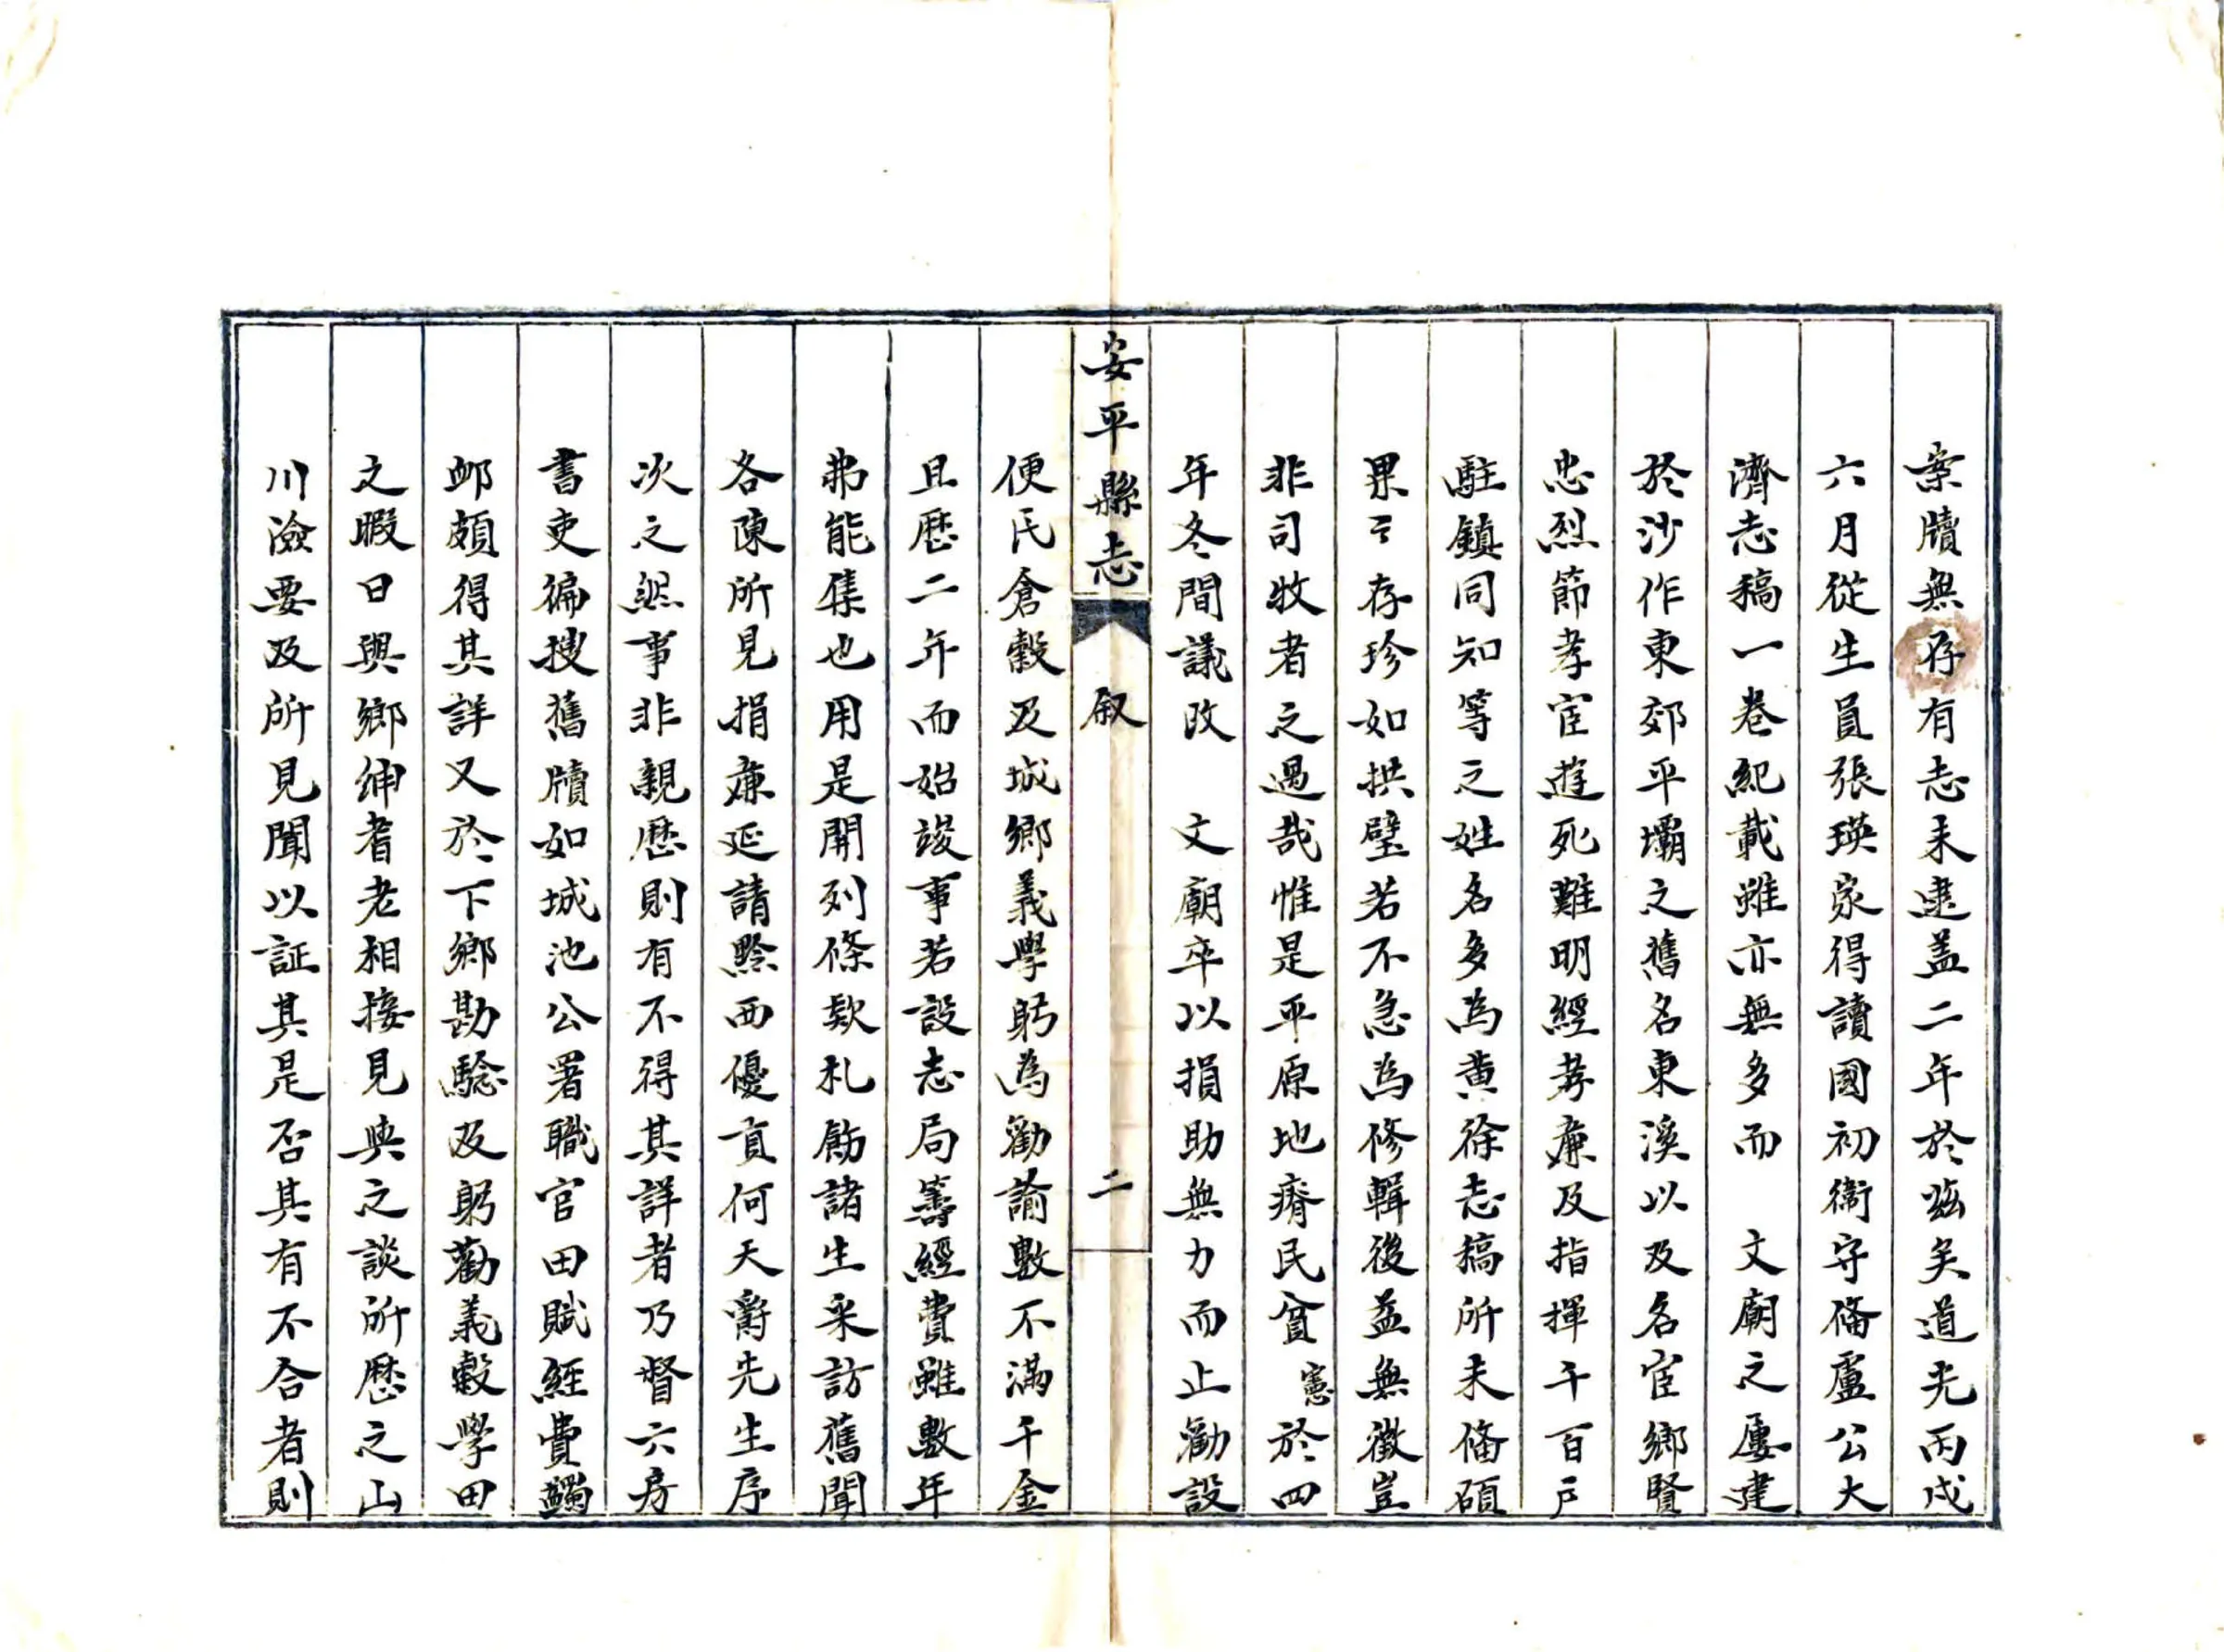 案牘無存有志未逮盖二年於兹矣道光丙戌
六月從生員張瑛家得讀國初衞守偹盧公大
濟志稿一卷紀載雖亦無多而　文廟之屢建
於沙作東郊平壩之舊名東溪以及名宦鄉賢
忠烈節孝宦遊死難明經孝亷及指揮千百户
駐鎮同知等之姓名多為黄徐志稿所未偹碩
果〻存珍如拱璧若不急為修輯後益無徵豈
非司牧者之過哉惟是平原地瘠民貧憲於四
年冬間議改　文廟卒以損助無力而止勸設
安平縣志　叙　二
便民倉穀及城鄉義學躬為勸諭數不滿千金
且歷二年而始竣事若設志局籌經費雖數年
弗能集也用是開列條欵札飭諸生采訪舊聞
各陳所見捐亷延請黔西優貢何天爵先生序
次之然事非親歷則有不得其詳者乃督六房
書吏徧搜舊牘如城池公署職官田賦經費蠲
䘏頗得其詳又於下鄉勘驗及躬勸義穀學田
之暇日與鄉紳耆老相接見與之談所歷之山
川險要及所見聞以証其是否其有不合者則